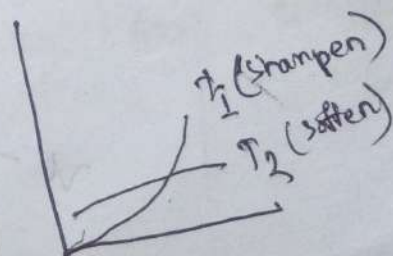 T1 (sharpen)
T2 (soften)